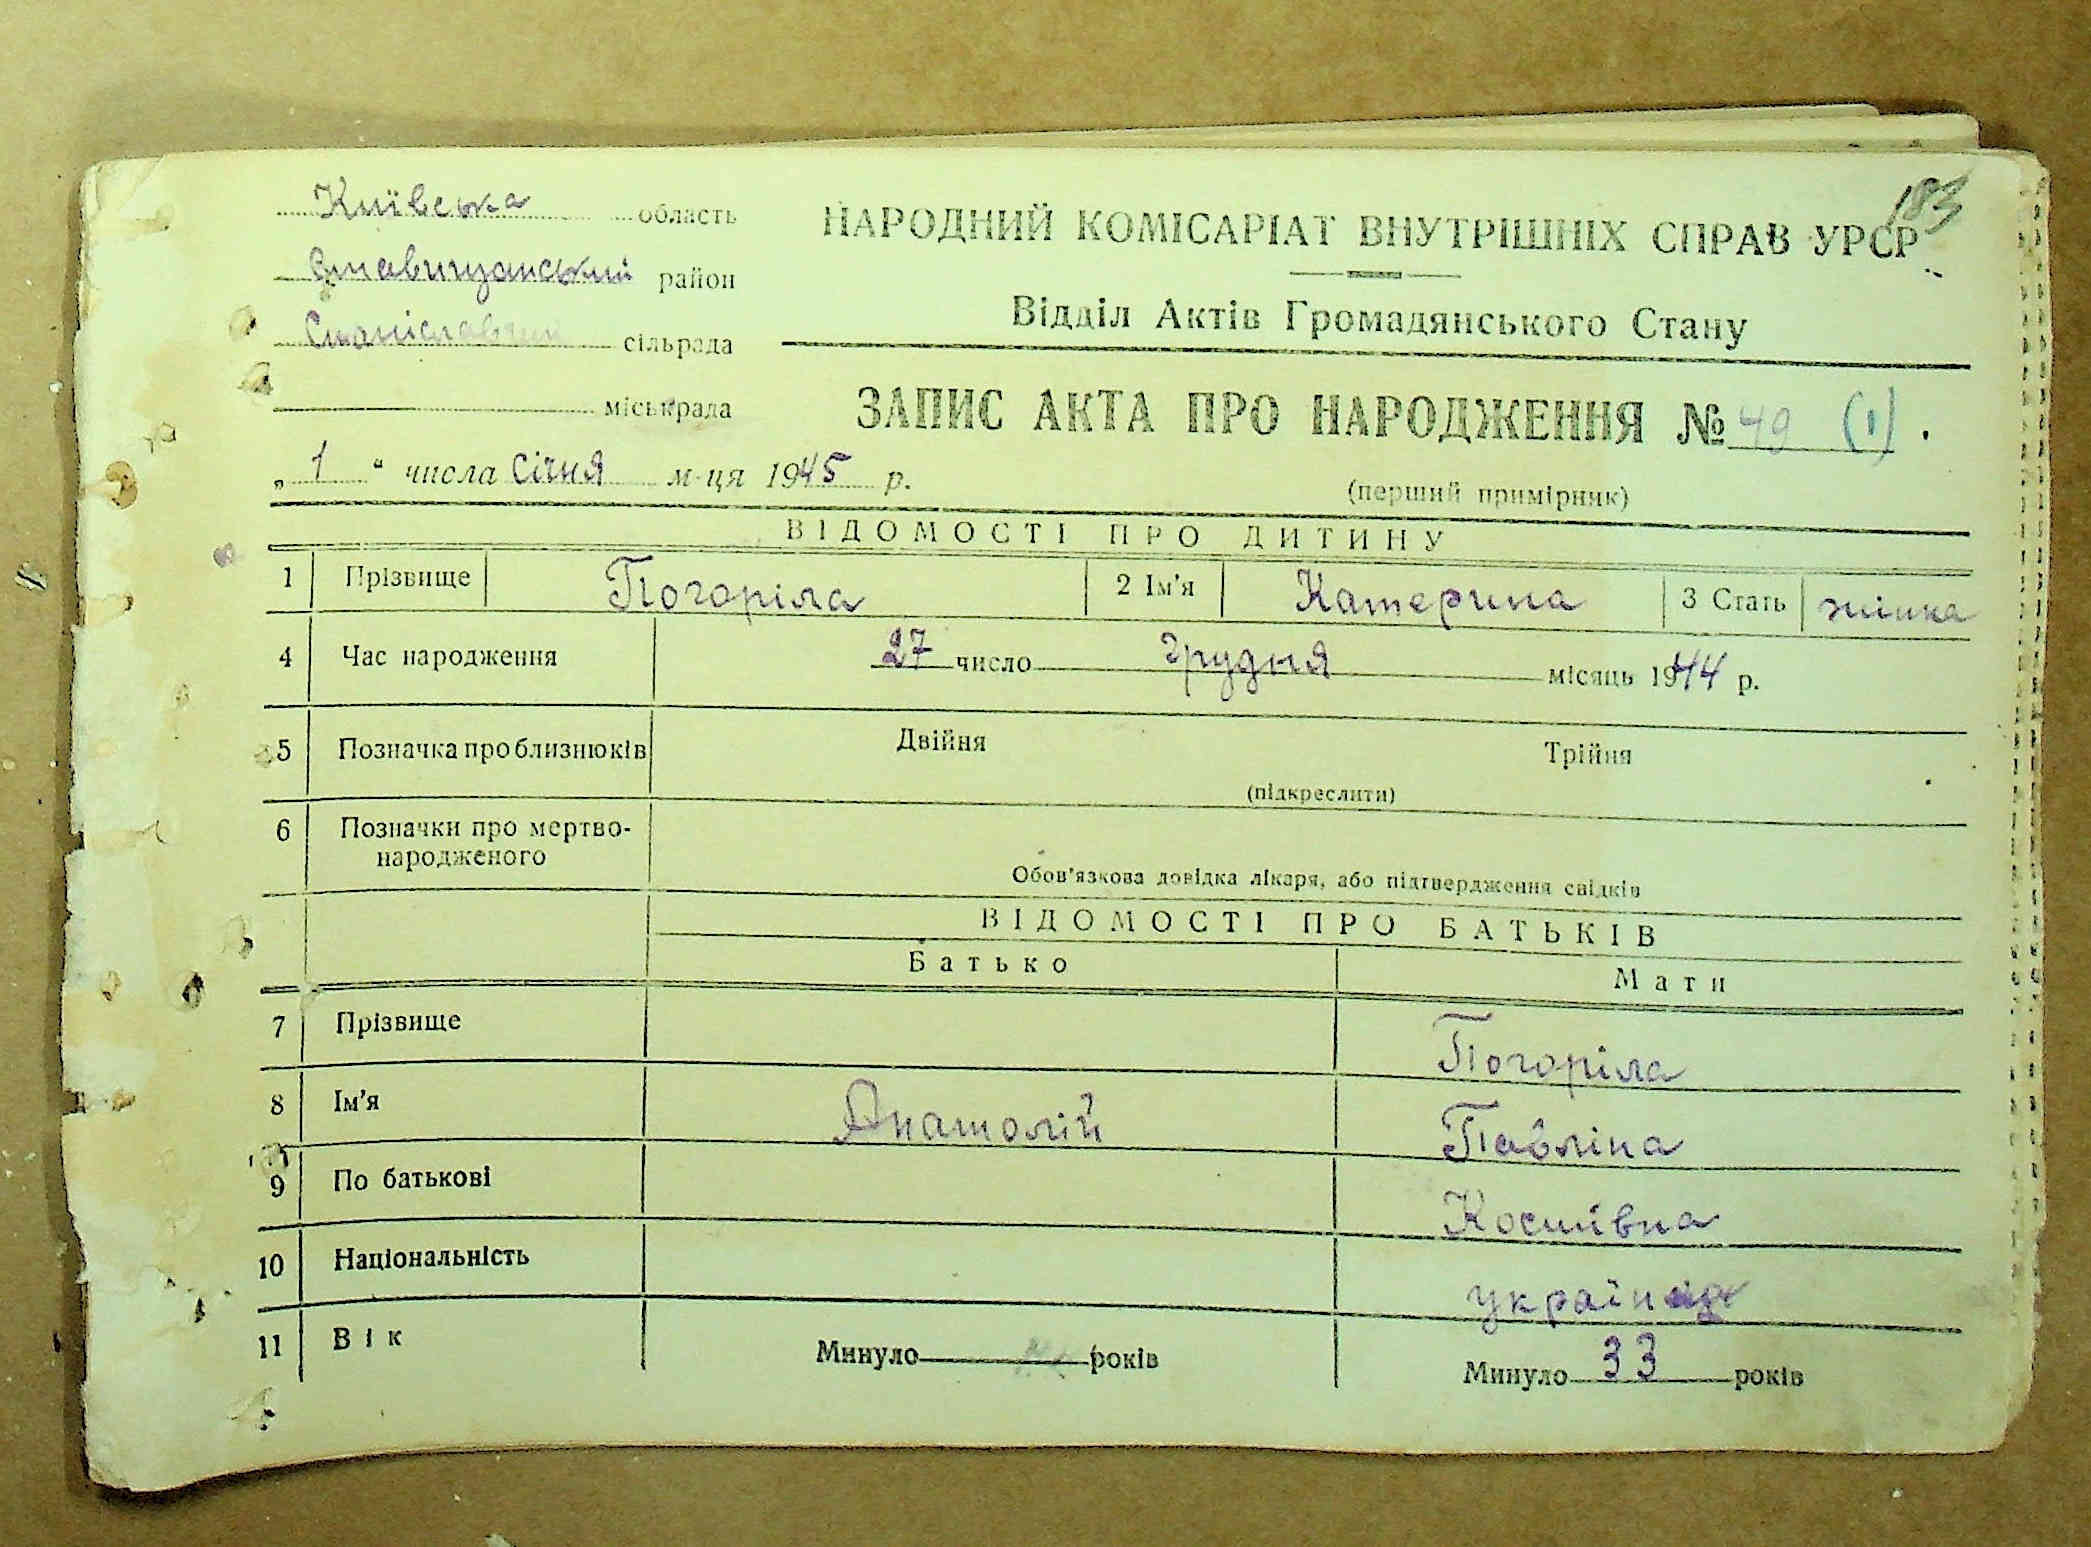 183
Київська область
Ставищанський район
сільрада
міськрада
НАРОДНИЙ КОМІСАРІАТ ВНУТРІШНІХ СПРАВ УРСР
Відділ Актів Громадянського Стану
ЗАПИС АКТА ПРО НАРОДЖЕННЯ № 49 (1)
„ 1 “ числа січня м-ця 1945 р.
(перший примірник)
ВІДОМОСТІ ПРО ДИТИНУ
1 Прізвище Погоріла 2 Ім'я Катерина 3 Стать жінка
4 Час народження 27 число грудня місяць 1944 р.
5 Позначка про близнюків Двійня Трійня
(підкреслити)
6 Позначки про мертво-
народженого
Обов'язкова довідка лікаря, або підтвердження свідків
ВІДОМОСТІ ПРО БАТЬКІВ
Батько Мати
7 Прізвище Погоріла
8 Ім'я Анатолій Павліна
9 По батькові
10 Національність
11 Вік Минуло років Минуло 33 років